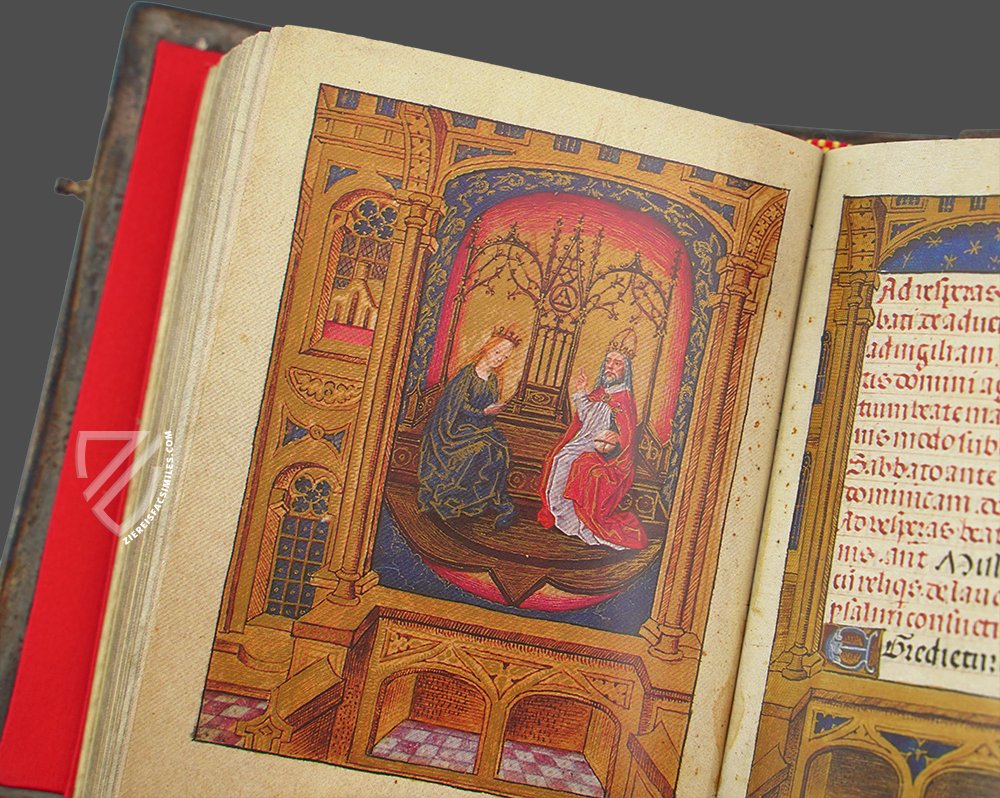 ZIEREISFACSIMILES.COM
Ad vesperas
bati de aduc
ad vigiliam
domini a
tium beate ma
nis modo sub
Sabbato ante
dominicam de
Ad vesperas bea
nis. ant
reliqs. de laud
psalmi consueti
Egredietur